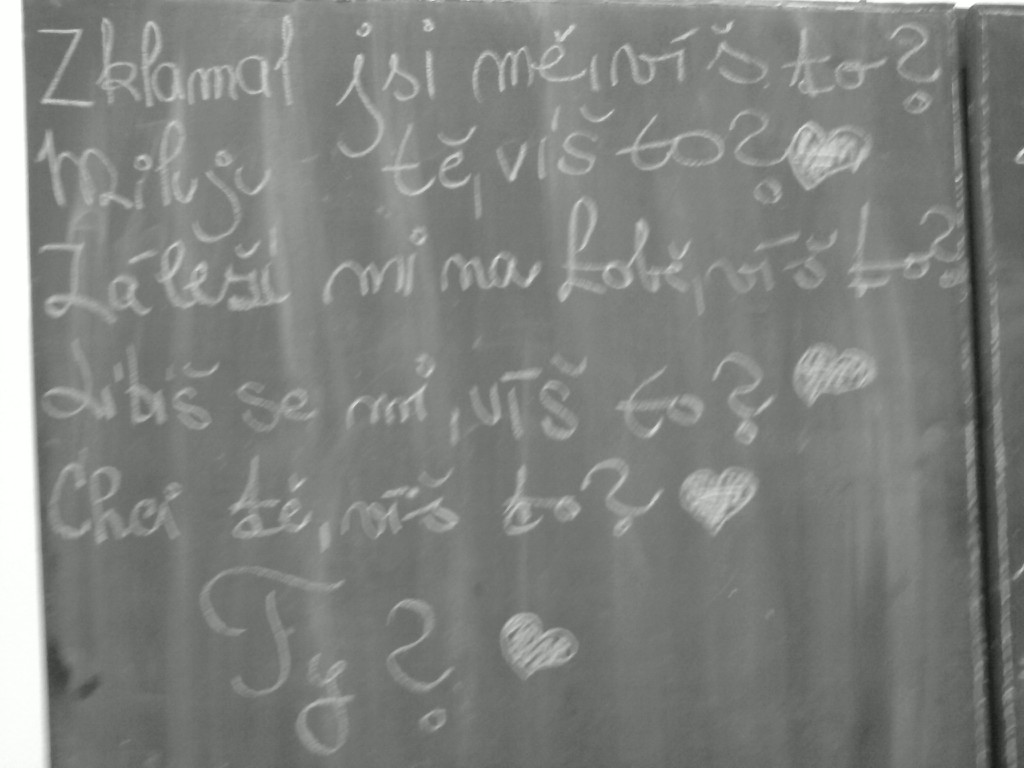 Zklamal jsi mě, víš to?
Miluju tě, víš to?
Záleží mi na tobě, víš to?
Líbíš se mi, víš to?
Chci tě, víš to?
Ty?